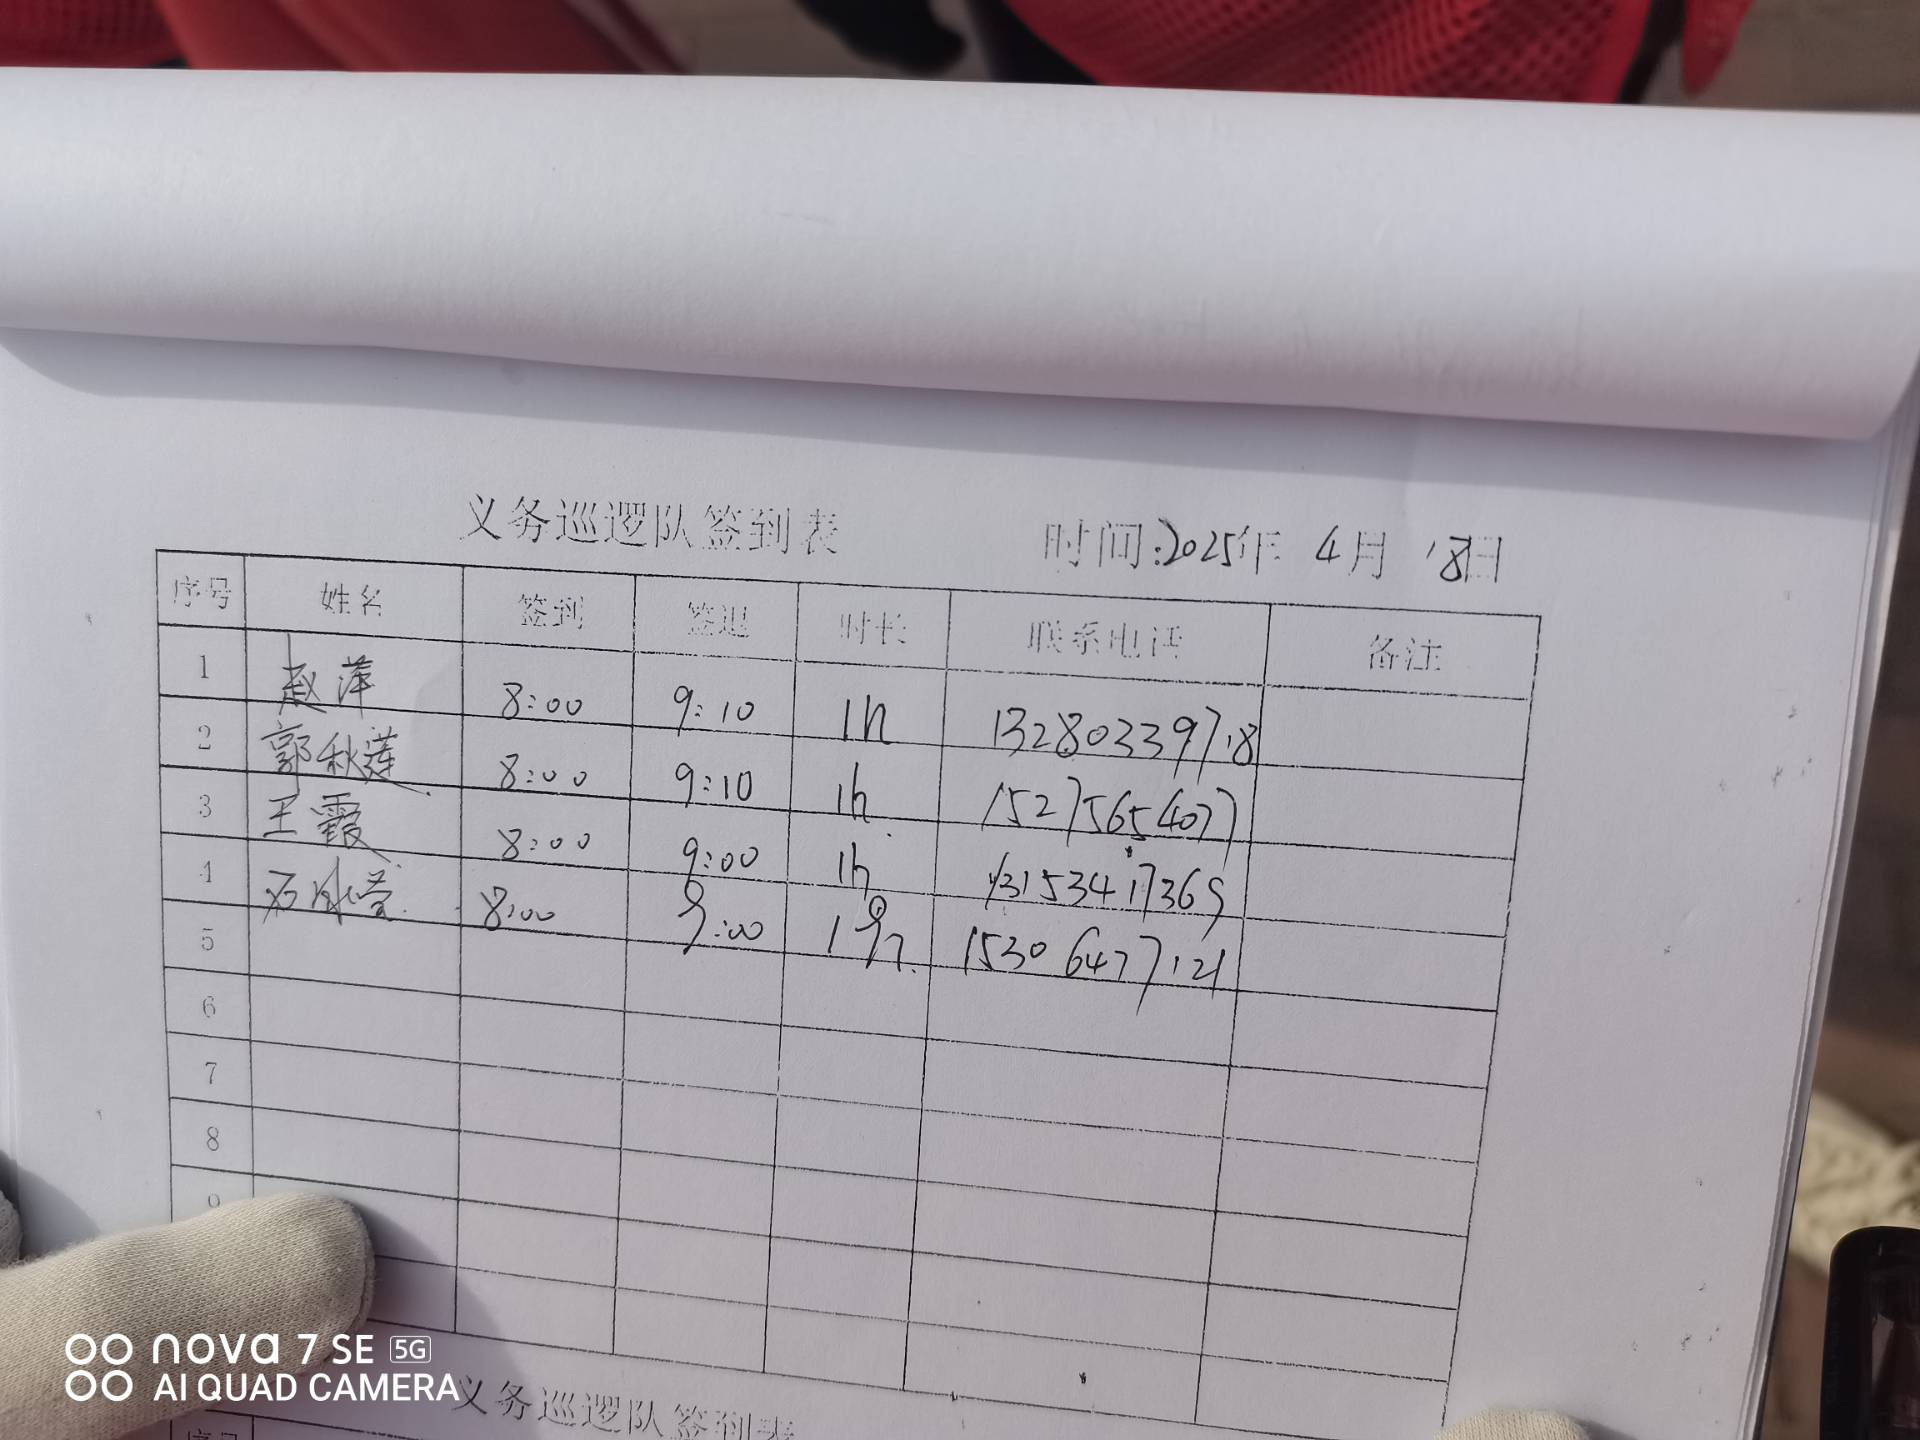 义务巡逻队签到表 时间:2025年 4月 18日
序号 姓名 签到 签退 时长 联系电话 备注
1 赵萍 8:00 9:10 1h 13280339718
2 郭秋莲 8:00 9:10 1h. 15275654077
3 王霞 8:00 9:00 1h 13153417369
4 8:00 9:00 1 15306477121
5
6
7
8
9
nova 7 SE 5G
AI QUAD CAMERA
义务巡逻队签到表
序号